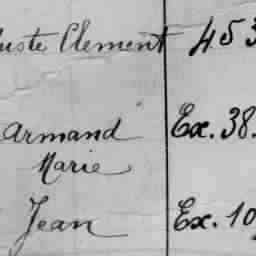 uste Clement 453
Armand Ex. 38.
Marie
Jean Ex. 10